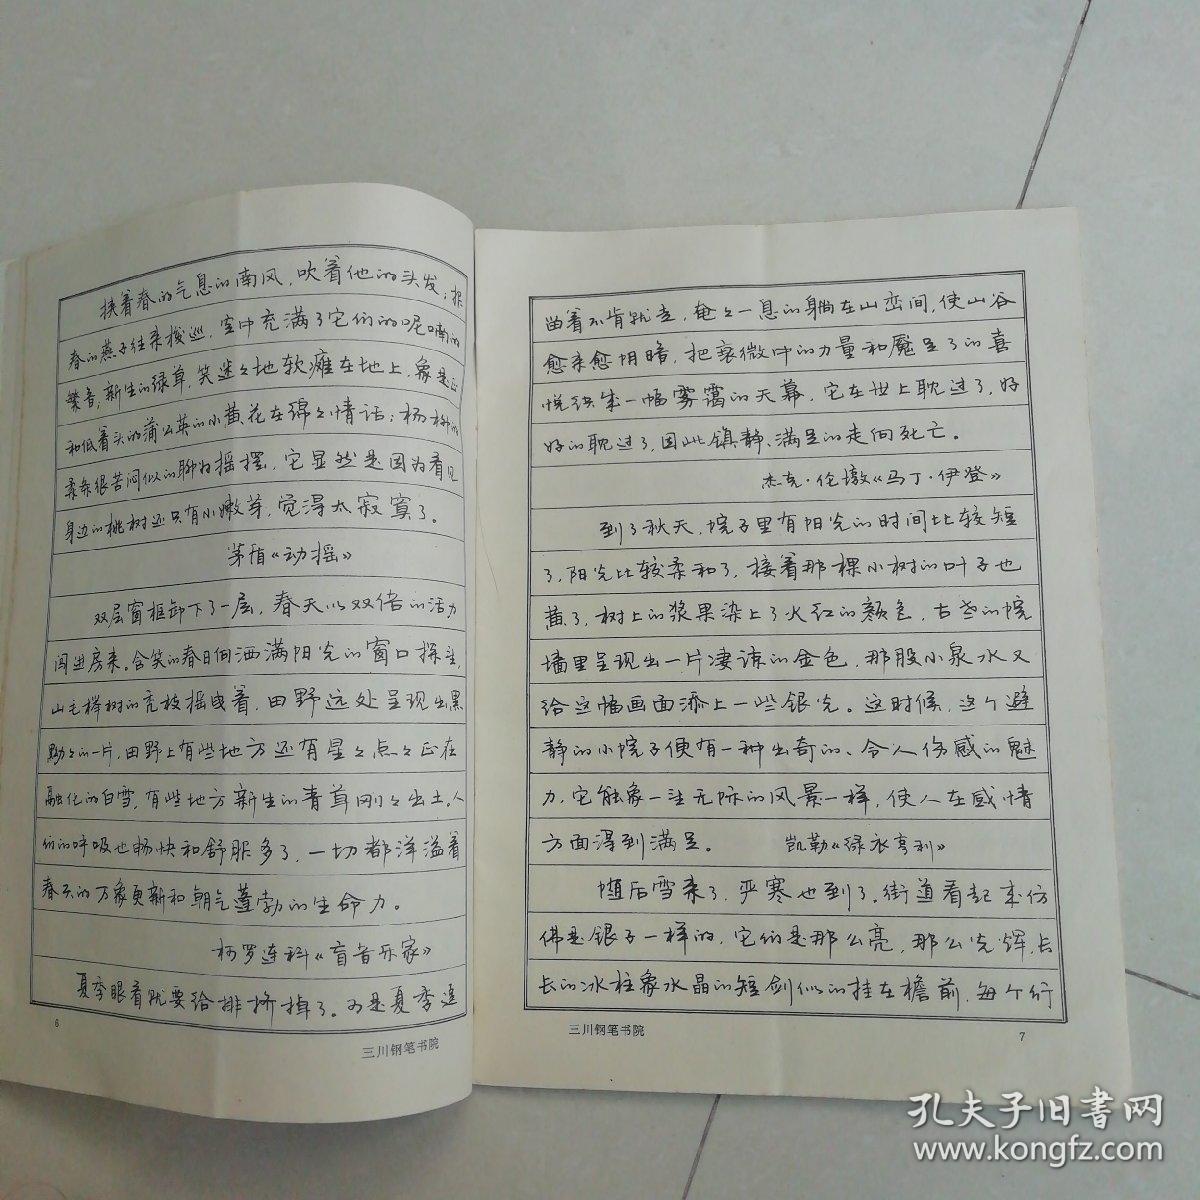 挟着春的气息的南风，吹着他的头发；报
春的燕子往来梭巡，空中充满了它们的呢喃的
繁音；新生的绿草，笑迷々地软瘫在地上，象是正
和低着头的蒲公英的小黄花在绵々情话；杨柳的
柔条很苦闷似的聊为摇摆，它显然是因为看见
身边的桃树还只有小嫩芽，觉得太寂寞了。
茅盾《动摇》
双层窗框卸下了一层，春天以双倍的活力
闯进房来。含笑的春日向洒满阳光的窗口探头，
山毛榉树的秃枝摇曳着，田野远处呈现出黑
黝々的一片，田野上有些地方还有星々点々正在
融化的白雪，有些地方新生的青草刚々出土。人
们的呼吸也畅快和舒服多了，一切都洋溢着
春天的万象更新和朝气蓬勃的生命力。
柯罗连科《盲音乐家》
夏季眼看就要给排挤掉了。可是夏季逗
6
三川钢笔书院
留着不肯就走，奄々一息的躺在山峦间，使山谷
愈来愈阴暗，把衰微中的力量和魇足了的喜
悦织成一幅雾霭的天幕，它在世上耽过了，好
好的耽过了，因此镇静、满足的走向死亡。
杰克·伦墩《马丁·伊登》
到了秋天，院子里有阳光的时间比较短
了，阳光比较柔和了，接着那棵小树的叶子也
黄了，树上的浆果染上了火红的颜色，古老的院
墙里呈现出一片凄凉的金色，那股小泉水又
给这幅画面添上一些银光。这时候，这个避
静的小院子便有一种出奇的、令人伤感的魅
力，它能象一注无际的风景一样，使人在感情
方面得到满足。 凯勒《绿衣亨利》
随后雪来了，严寒也到了。街道看起来仿
佛是银子一样的，它们是那么亮，那么光辉，长
长的冰柱象水晶的短剑似的挂在檐前，每个行
三川钢笔书院
7
孔夫子旧书网
www.kongfz.com